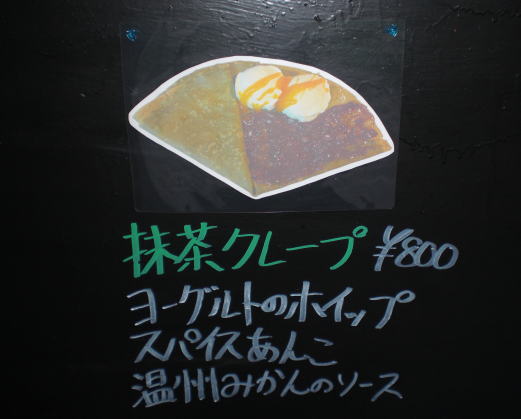 抹茶クレープ ¥800
ヨーグルトのホイップ
スパイスあんこ
温州みかんのソース